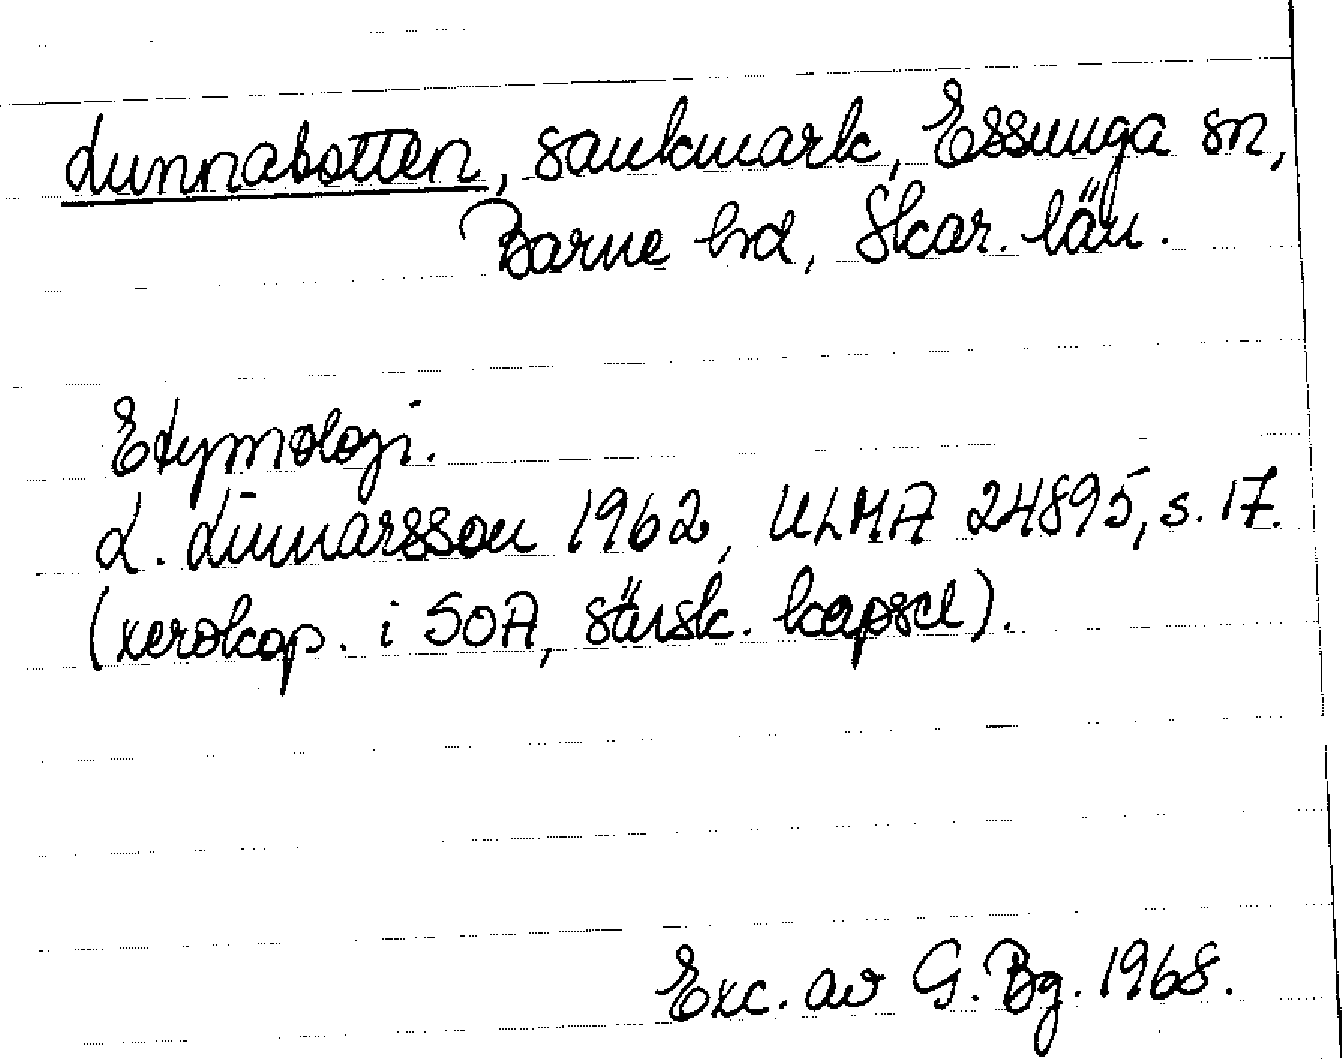 Lunnabotten, sankmark, Essunga sn,
Barne hd, Skar. län.
Etymologi.
L. Linnarsson 1962, ULMA 24895, s. 17.
(xerokop. i SOA, särsk. kapsel).
Exc. av G. Bg. 1968.